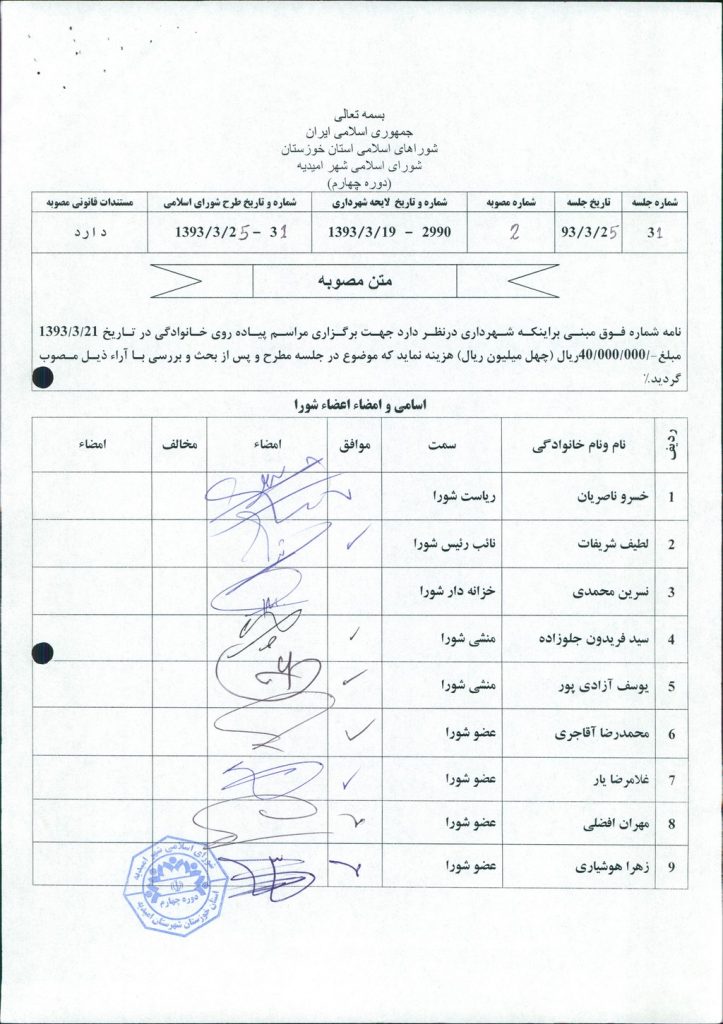 بسمه تعالی
جمهوری اسلامی ایران
شوراهای اسلامی استان خوزستان
شورای اسلامی شهر امیدیه
(دوره چهارم)
شماره جلسه تاریخ جلسه شماره مصوبه شماره و تاریخ لایحه شهرداری شماره و تاریخ طرح شورای اسلامی مستندات قانونی مصوبه
31 93/3/25 2 2990 - 1393/3/19 31 - 1393/3/25 دارد
متن مصوبه
نامه شماره فوق مبنی براینکه شهرداری درنظر دارد جهت برگزاری مراسم پیاده روی خانوادگی در تاریخ 1393/3/21
مبلغ-/40/000/000ریال (چهل میلیون ریال) هزینه نماید که موضوع در جلسه مطرح و پس از بحث و بررسی با آراء ذیل مصوب
گردید٪
اسامی و امضاء اعضاء شورا
ردیف نام ونام خانوادگی سمت موافق امضاء مخالف امضاء
1 خسرو ناصریان ریاست شورا
2 لطیف شریفات نائب رئیس شورا
3 نسرین محمدی خزانه دار شورا
4 سید فریدون جلوزاده منشی شورا
5 یوسف آزادی پور منشی شورا
6 محمدرضا آقاجری عضو شورا
7 غلامرضا یار عضو شورا
8 مهران افضلی عضو شورا
9 زهرا هوشیاری عضو شورا
شورای اسلامی شهر امیدیه
دوره چهارم
استان خوزستان شهرستان امیدیه